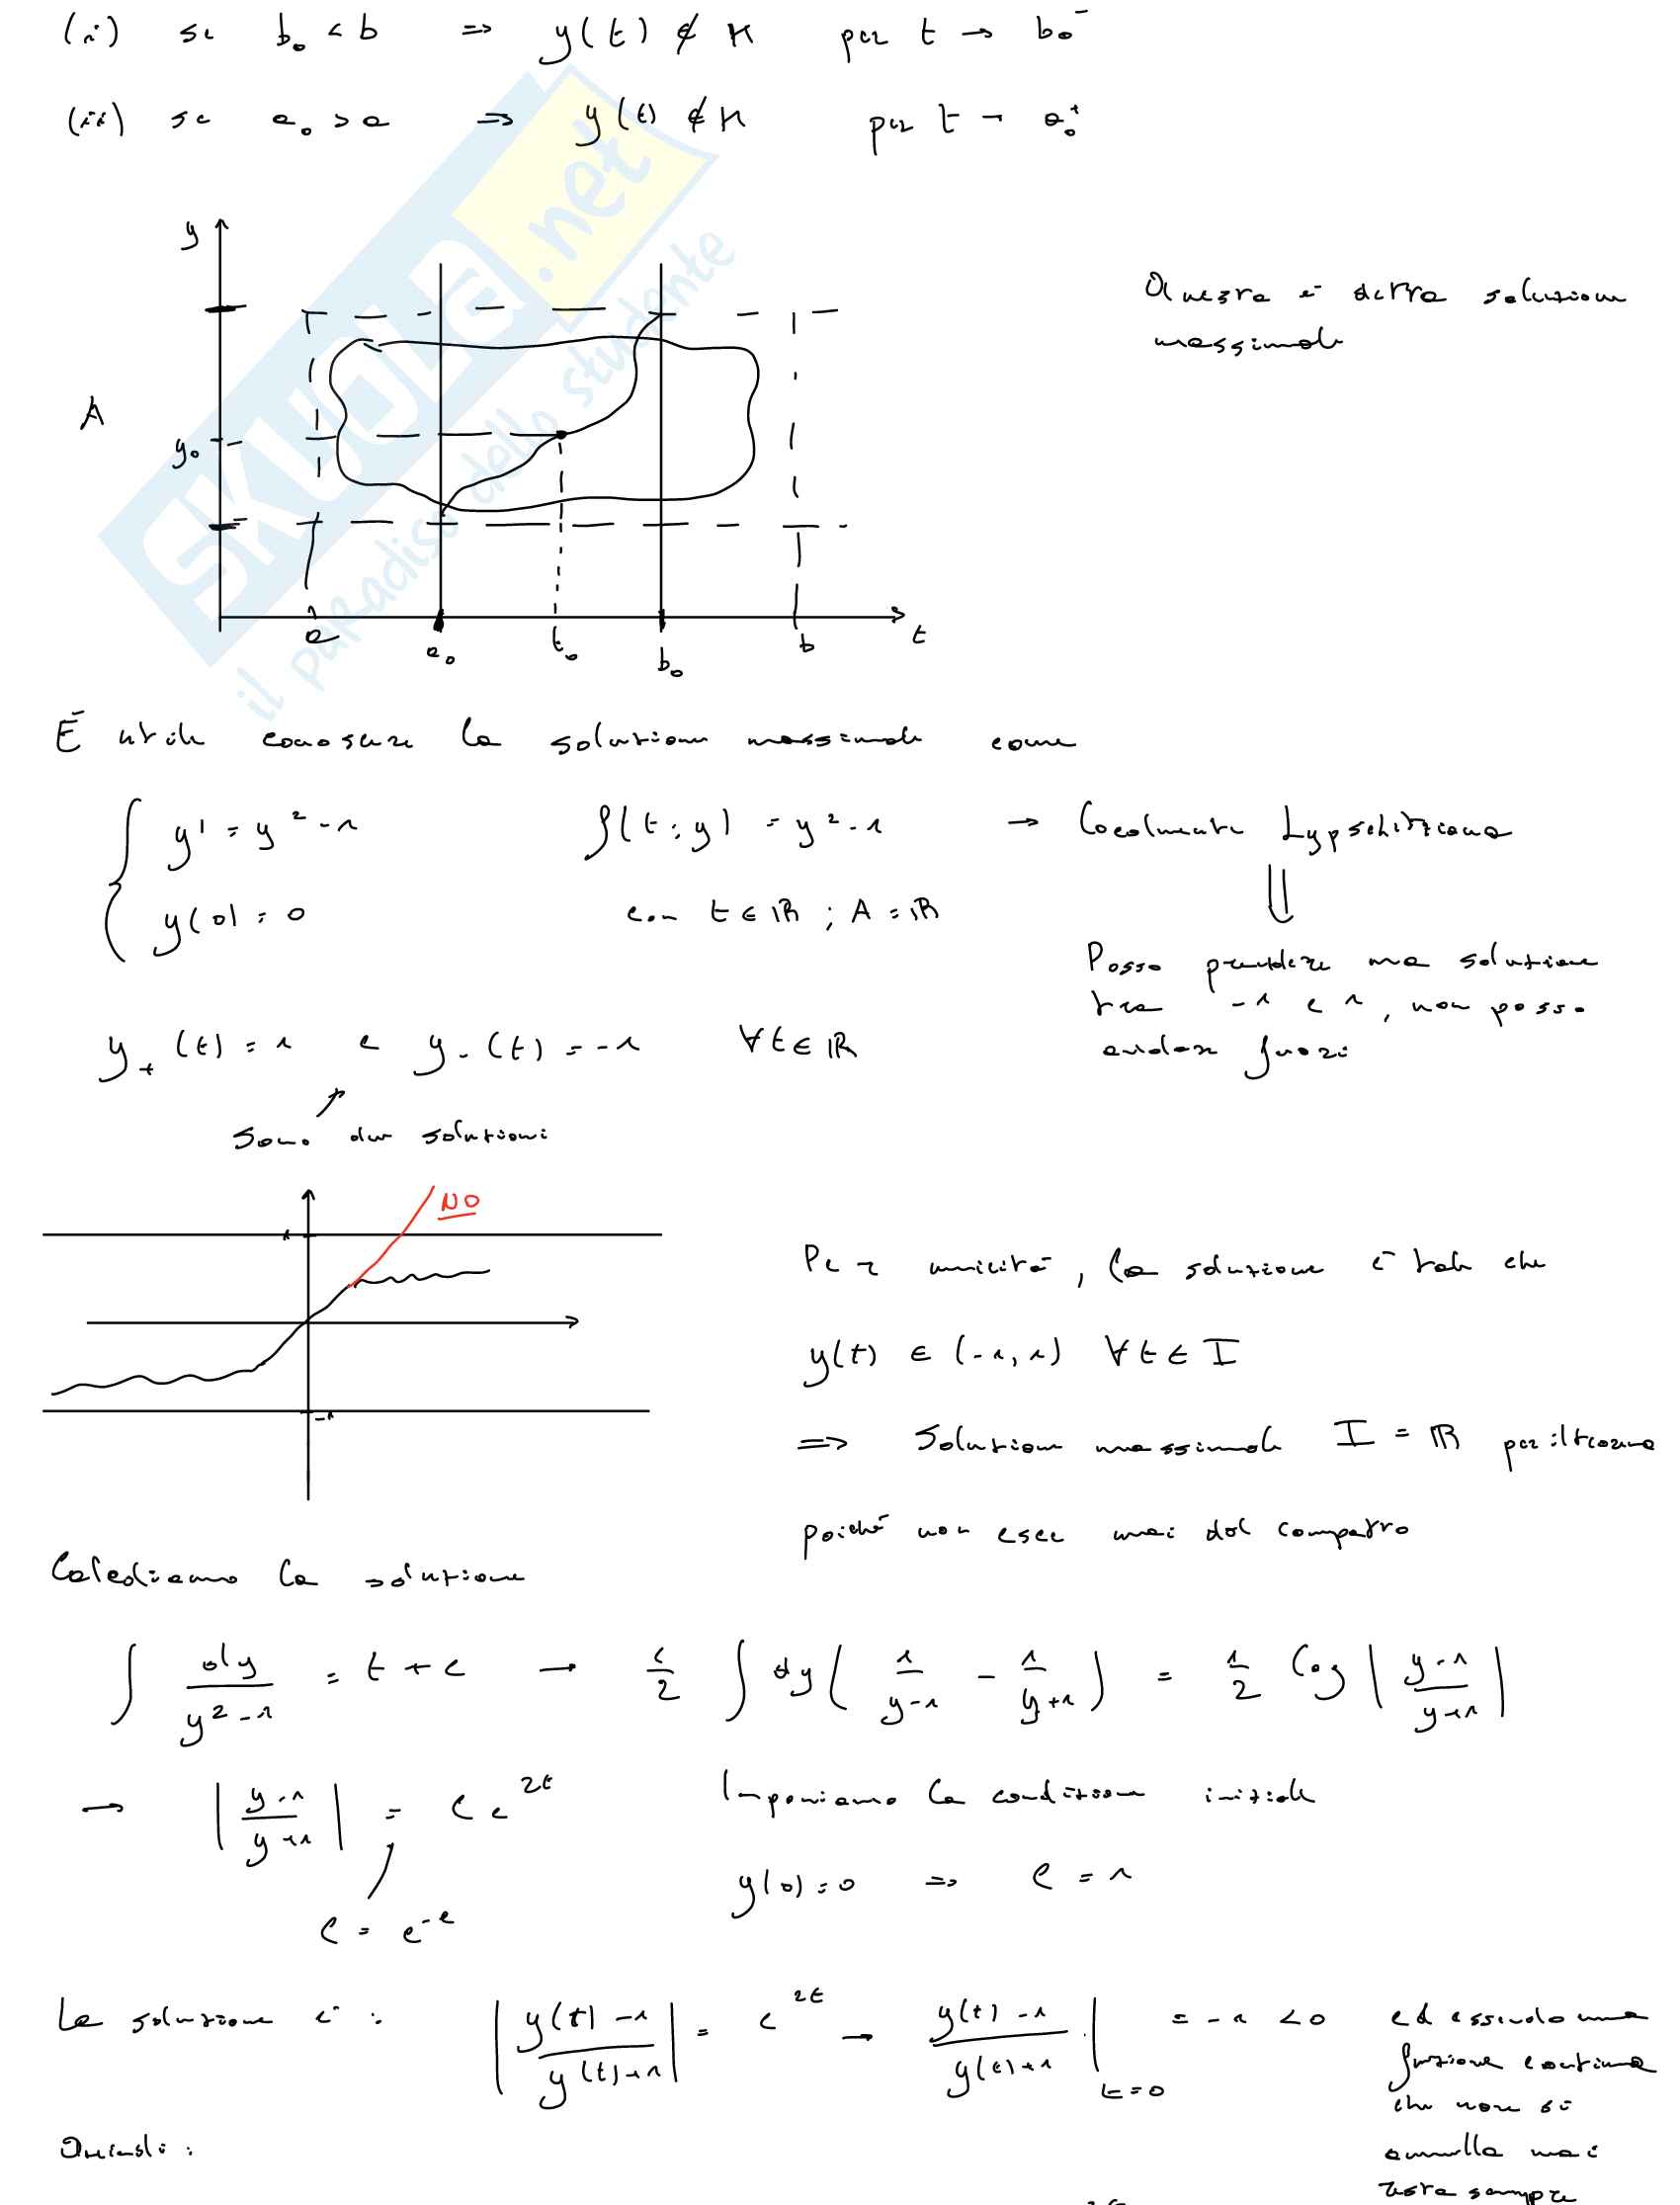 (i) se b₀ < b ⇒ y(t) ∉ K per t → b₀⁻
(ii) se a₀ > a ⇒ y(t) ∉ K per t → a₀⁺
y
Questa è detta soluzione
massimale
A
y₀
a
a₀
t₀
b₀
b
t
È utile conoscere la soluzione massimale come
{ y' = y² - 1 f(t; y) = y² - 1 → Localmente Lypschitziana
y(0) = 0 con t ∈ ℝ ; A = ℝ
⇓
Posso prendere una soluzione
tra -1 e 1, non posso
andare fuori
y₊(t) = 1 e y₋(t) = -1 ∀t ∈ ℝ
Sono due soluzioni
NO
1
-1
Per unicità, la soluzione è tale che
y(t) ∈ (-1, 1) ∀t ∈ I
⇒ Soluzione massimale I = ℝ per il teorema
poiché non esce mai dal compatto
Calcoliamo la soluzione
∫ dy/(y² - 1) = t + c → 1/2 ∫ dy (1/(y-1) - 1/(y+1)) = 1/2 log |(y-1)/(y+1)|
→ |(y-1)/(y+1)| = C e^{2t} Imponiamo la condizione iniziale
y(0) = 0 ⇒ C = 1
C = e^{-c}
La soluzione è : |(y(t)-1)/(y(t)+1)| = e^{2t} → (y(t)-1)/(y(t)+1) |_{t=0} = -1 < 0 ed essendo una
funzione continua
che non si
annulla mai
resta sempre
Quindi :
SKUOLA.net
il paradiso dello studente